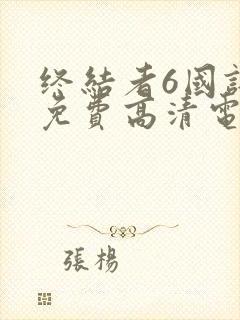 终結者6國
免費高清電
張楊